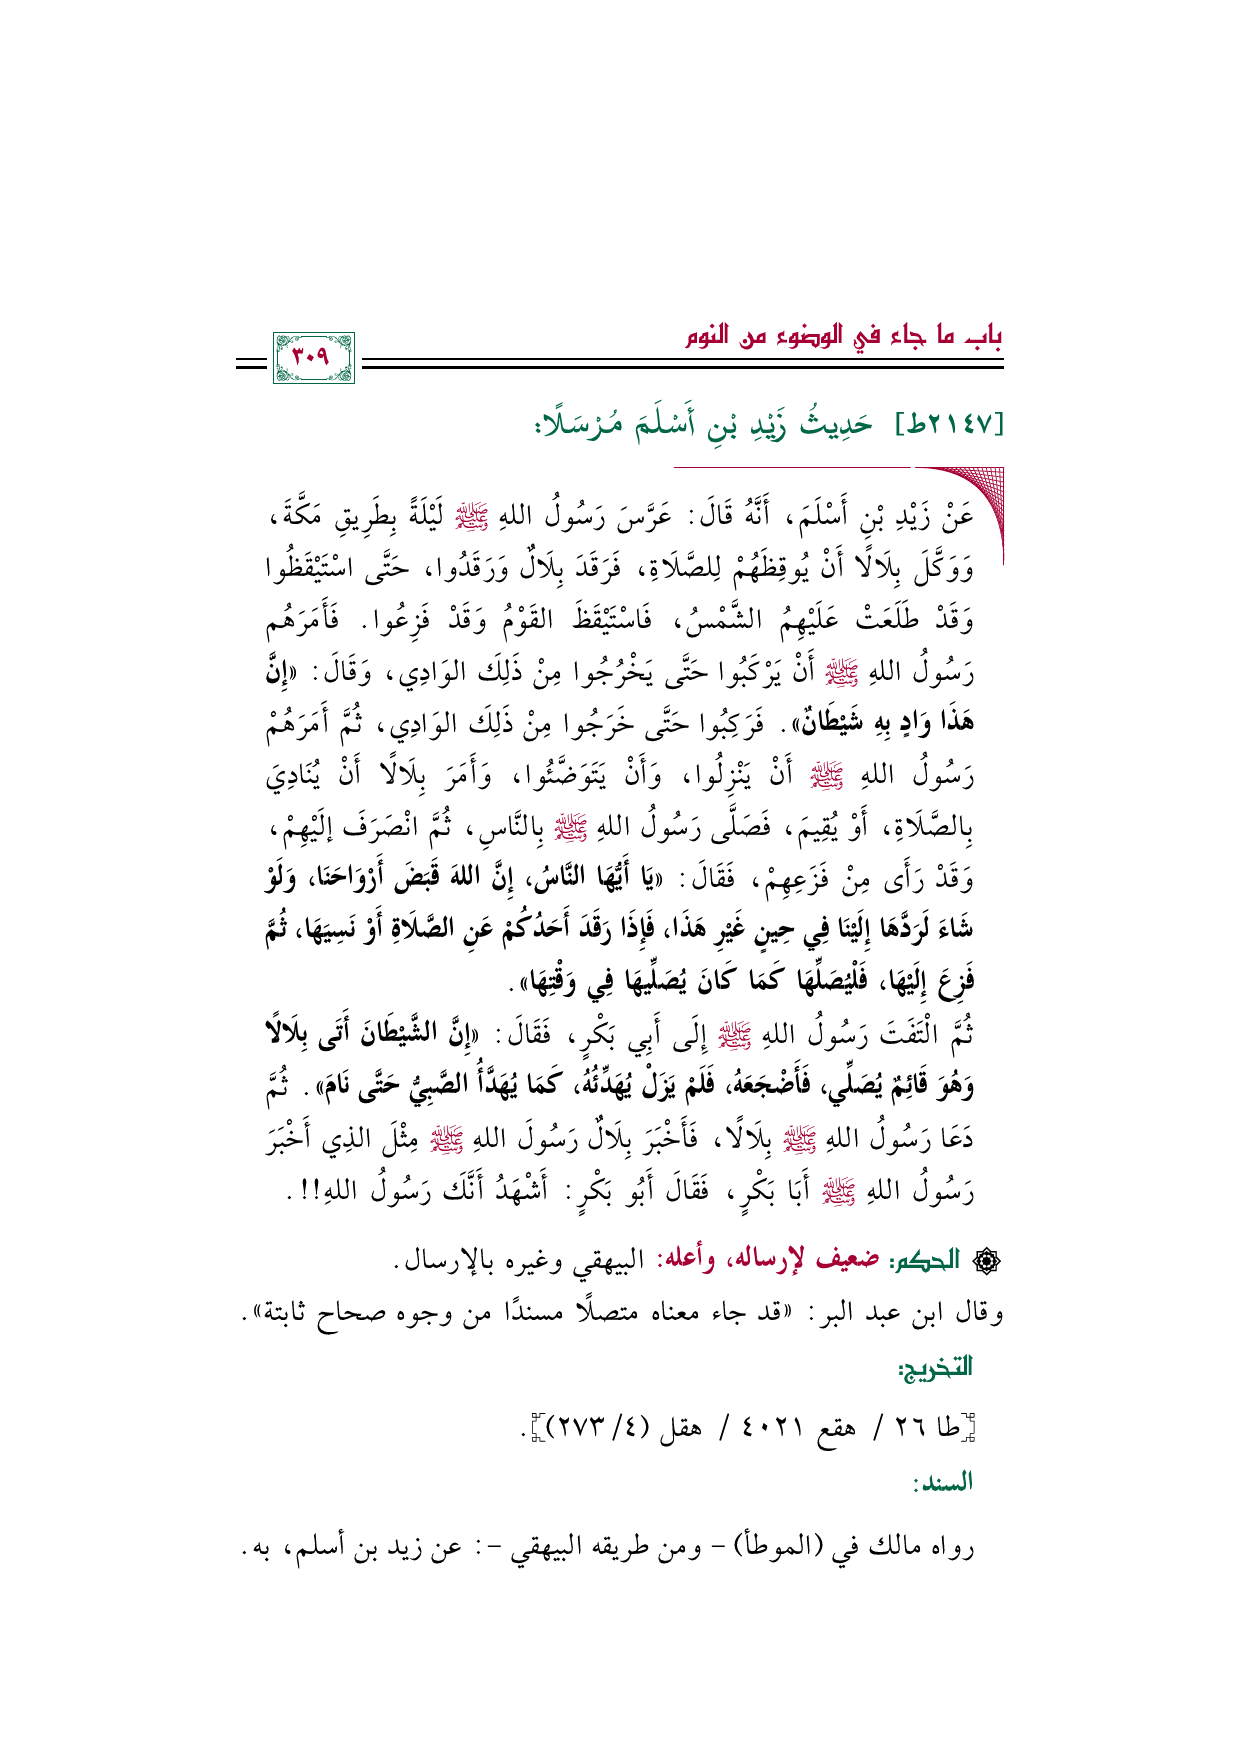 باب ما جاء في الوضوء من النوم
٣٠٩
[٢١٤٧ط] حَدِيثُ زَيْدِ بْنِ أَسْلَمَ مُرْسَلًا:
عَنْ زَيْدِ بْنِ أَسْلَمَ، أَنَّهُ قَالَ: عَرَّسَ رَسُولُ اللهِ ﷺ لَيْلَةً بِطَرِيقِ مَكَّةَ،
وَوَكَّلَ بِلَالًا أَنْ يُوقِظَهُمْ لِلصَّلَاةِ، فَرَقَدَ بِلَالٌ وَرَقَدُوا، حَتَّى اسْتَيْقَظُوا
وَقَدْ طَلَعَتْ عَلَيْهِمُ الشَّمْسُ، فَاسْتَيْقَظَ القَوْمُ وَقَدْ فَزِعُوا. فَأَمَرَهُم
رَسُولُ اللهِ ﷺ أَنْ يَرْكَبُوا حَتَّى يَخْرُجُوا مِنْ ذَلِكَ الوَادِي، وَقَالَ: «إِنَّ
هَذَا وَادٍ بِهِ شَيْطَانٌ». فَرَكِبُوا حَتَّى خَرَجُوا مِنْ ذَلِكَ الوَادِي، ثُمَّ أَمَرَهُمْ
رَسُولُ اللهِ ﷺ أَنْ يَنْزِلُوا، وَأَنْ يَتَوَضَّئُوا، وَأَمَرَ بِلَالًا أَنْ يُنَادِيَ
بِالصَّلَاةِ، أَوْ يُقِيمَ، فَصَلَّى رَسُولُ اللهِ ﷺ بِالنَّاسِ، ثُمَّ انْصَرَفَ إلَيْهِمْ،
وَقَدْ رَأَى مِنْ فَزَعِهِمْ، فَقَالَ: «يَا أَيُّهَا النَّاسُ، إِنَّ اللهَ قَبَضَ أَرْوَاحَنَا، وَلَوْ
شَاءَ لَرَدَّهَا إِلَيْنَا فِي حِينٍ غَيْرِ هَذَا، فَإِذَا رَقَدَ أَحَدُكُمْ عَنِ الصَّلَاةِ أَوْ نَسِيَهَا، ثُمَّ
فَزِعَ إِلَيْهَا، فَلْيُصَلِّهَا كَمَا كَانَ يُصَلِّيهَا فِي وَقْتِهَا».
ثُمَّ الْتَفَتَ رَسُولُ اللهِ ﷺ إِلَى أَبِي بَكْرٍ، فَقَالَ: «إِنَّ الشَّيْطَانَ أَتَى بِلَالًا
وَهُوَ قَائِمٌ يُصَلِّي، فَأَضْجَعَهُ، فَلَمْ يَزَلْ يُهَدِّئُهُ، كَمَا يُهَدَّأُ الصَّبِيُّ حَتَّى نَامَ». ثُمَّ
دَعَا رَسُولُ اللهِ ﷺ بِلَالًا، فَأَخْبَرَ بِلَالٌ رَسُولَ اللهِ ﷺ مِثْلَ الذِي أَخْبَرَ
رَسُولُ اللهِ ﷺ أَبَا بَكْرٍ، فَقَالَ أَبُو بَكْرٍ: أَشْهَدُ أَنَّكَ رَسُولُ اللهِ!!.
الحكم: ضعيف لإرساله، وأعله: البيهقي وغيره بالإرسال.
وقال ابن عبد البر: «قد جاء معناه متصلًا مسندًا من وجوه صحاح ثابتة».
التخريج:
[طا ٢٦ / هقع ٤٠٢١ / هقل (٤/ ٢٧٣)].
السند:
رواه مالك في (الموطأ) – ومن طريقه البيهقي –: عن زيد بن أسلم، به.